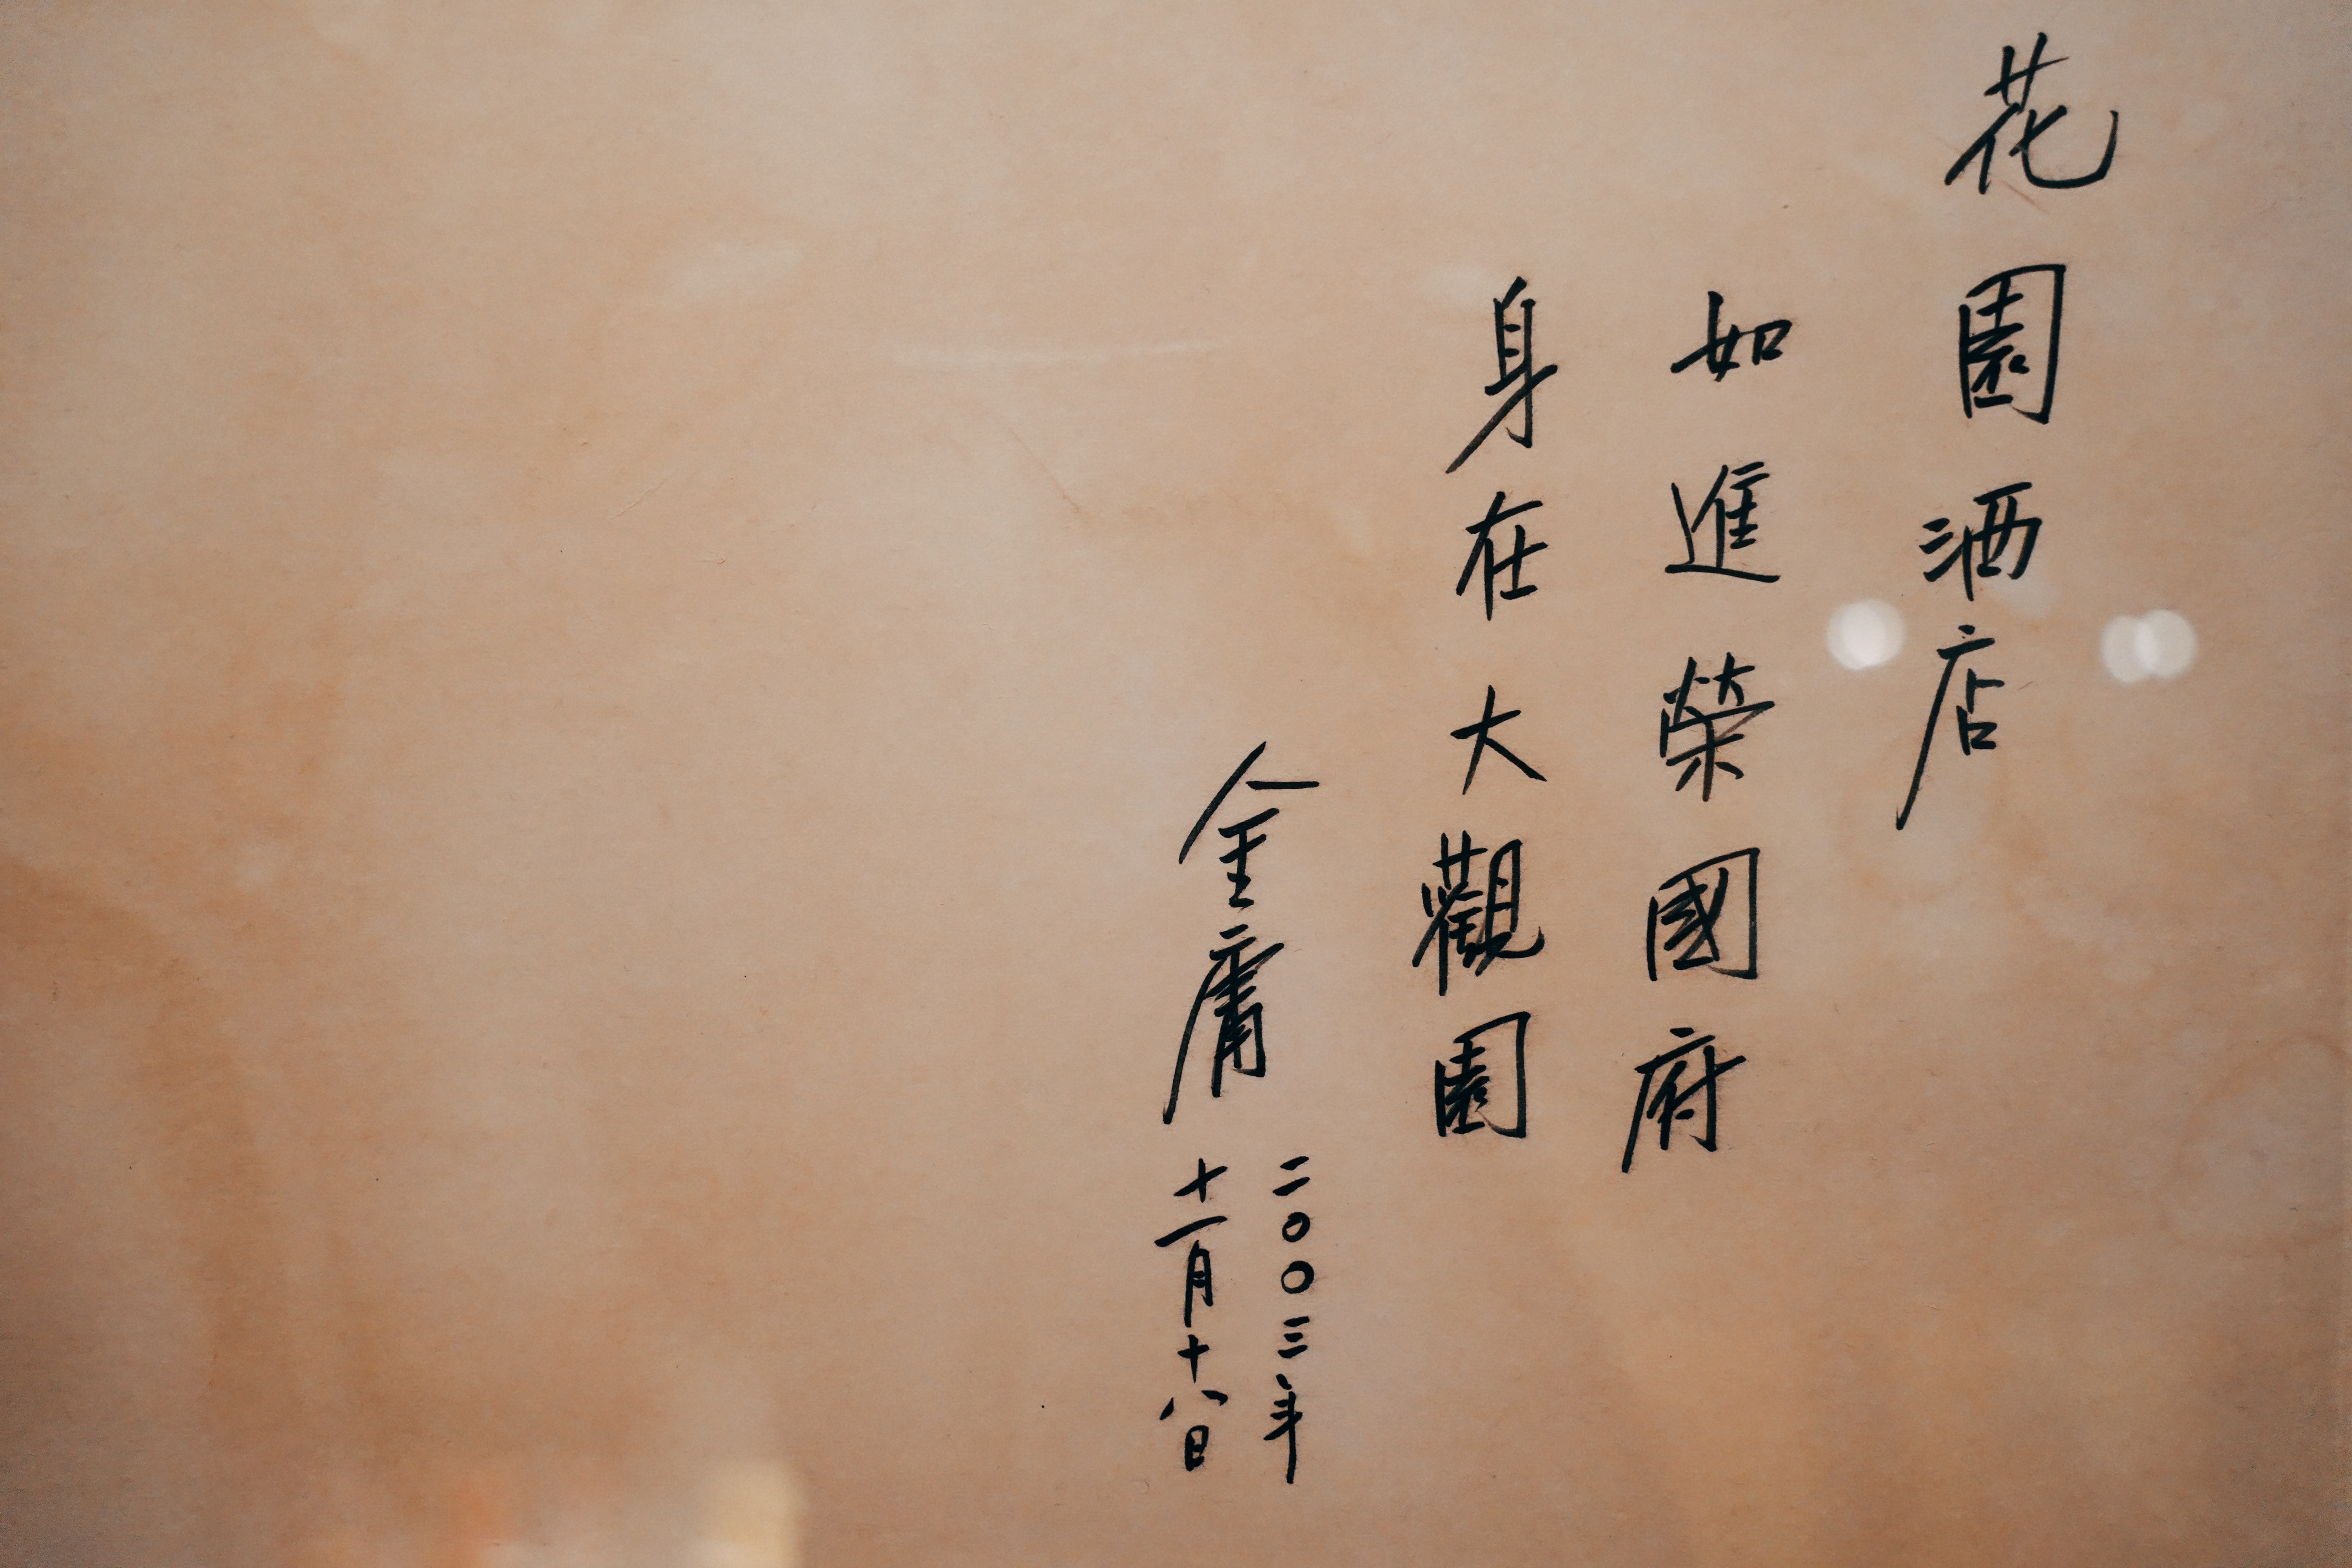 花園酒店
如進榮國府
身在大觀園
金庸
二〇〇三年
十一月十八日